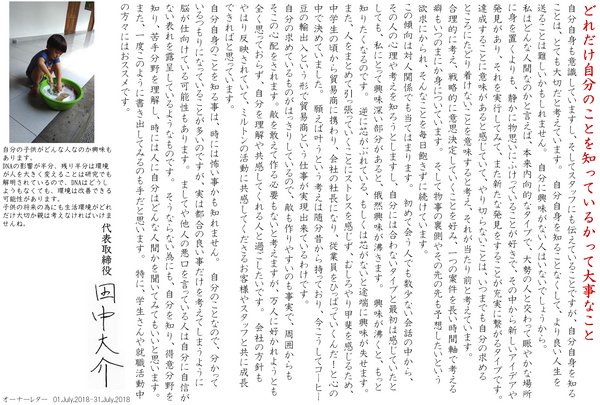 どれだけ自分のことを知っているかって大事なこと
自分自身も意識していますし、そしてスタッフにも伝えていることですが、自分自身を知る
ことは、とても大切だと考えています。自分自身を知ることなくして、より良い人生を
送ることは難しいかもしれません。自分に興味がない人はいないでしょうから。
私はどんな人間なのかと言えば、本来内向的なタイプで、大勢の人と交わって賑やかな場所
に身を置くよりも、静かに物思いにふけっていることが好きで、その中から新しいアイデアや
発見があり、それを実行してみて、また新たな発見をすることが充実に繋がるタイプです。
達成することに意味があると感じていて、やり切らないことは、いつまでも自分の求める
ところにたどり着けないことを意味すると考え、それが当たり前と考えています。
合理的に考え、戦略的に意思決定していくことを好み、一つの案件を長い時間軸で考える
癖もいつのまにか身についています。そして物事の裏側やその先の先も予想したいという
欲求にかられ、そんなことを毎日飽きずに続けています。
この傾向は対人関係でも当てはまります。初めて会う人でも数少ない会話の中から、
その人の心理や考えを知ろうとしますし、自分には合わないタイプと最初は感じていたと
しても、私にとって興味深い部分があると、俄然興味が沸きます。興味が沸くと、もっと
知りたくなるのです。逆に芯がぶれている、もしくは芯がないと途端に興味が失せます。
また、人をまとめて引っ張っていくことにストレスを感じず、むしろやり甲斐を感じるため、
中学生の頃から貿易商に携わり、会社の社長になり、従業員をひっぱっていくんだ!と心の
中で決めていました。願えば叶うという考えは随分昔から持っており、今こうしてコーヒー
豆の輸出入という形で貿易商という仕事が実現出来ているわけです。
自分の求めているものがはっきりしているので、敵も作りやすいのも事実で、周囲からも
そこの心配をされます。敵を敢えて作る必要もないと考えますが、万人に好かれようとも
全く思っておらず、自分を理解や共感してくれる人と過ごしたいです。会社の方針も
やはり反映されていて、ミルトンの活動に共感してくださるお客様やスタッフと共に成長
できればと思っています。
自分自身のことを知る事は、時には怖い事かも知れません。自分のことなので、分かって
いるつもりになっていることが多いのですが、実は都合の良い事だけを考えてしまうように
脳が仕向けている可能性もあります。ましてや他人の悪口を言っている人は自分に自信が
ない表れを露呈しているようなものです。そうならない為にも、自分を知り、得意分野を
知り、苦手分野を理解し、時には人に自分はどんな人間かを聞いてみてもいいと思います。
また、一度このように書き出してみるのも手だと思います。特に、学生さんや就職活動中
の方々にはおススメです。
自分の子供がどんな人なのか興味も
あります。
DNAの影響が半分、残り半分は環境
が人を大きく変えることは研究でも
解明されているので、DNAはどうし
ようもなくても、環境は改善できる
可能性があります。
子供の将来の為にも生活環境がどれ
だけ大切か親は考えなければいけま
せんね。
代表取締役 田中大介
オーナーレター 01.July,2018-31.July,2018